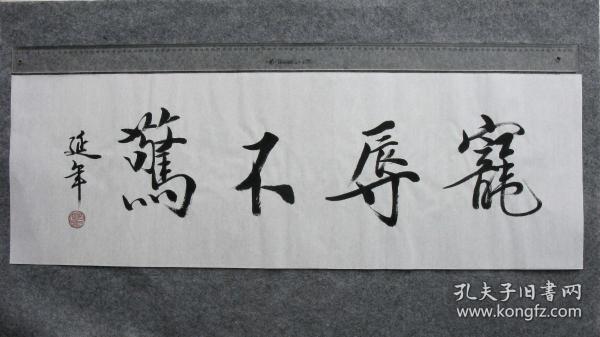 寵辱不驚
延年
孔夫子旧書网
www.kongfz.com